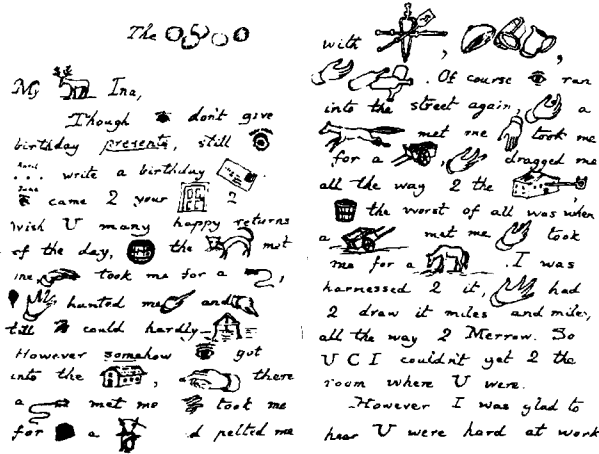 The
My Ina,
Though don't give
birthday presents, still
April
... write a birthday
June
came 2 your 2
wish U many happy returns
of the day, the met
me, took me for a ,
hunted me and
till could hardly
However somehow got
into the , there
a met me took me
for a d pelted me
with , ,
. Of course ran
into the street again, a
met me took me
for a , dragged me
all the way 2 the ,
the worst of all was when
a met me took
me for a . I was
harnessed 2 it, had
2 draw it miles and miles,
all the way 2 Merrow. So
U C I couldn't get 2 the
room where U were.
However I was glad to
hear U were hard at work